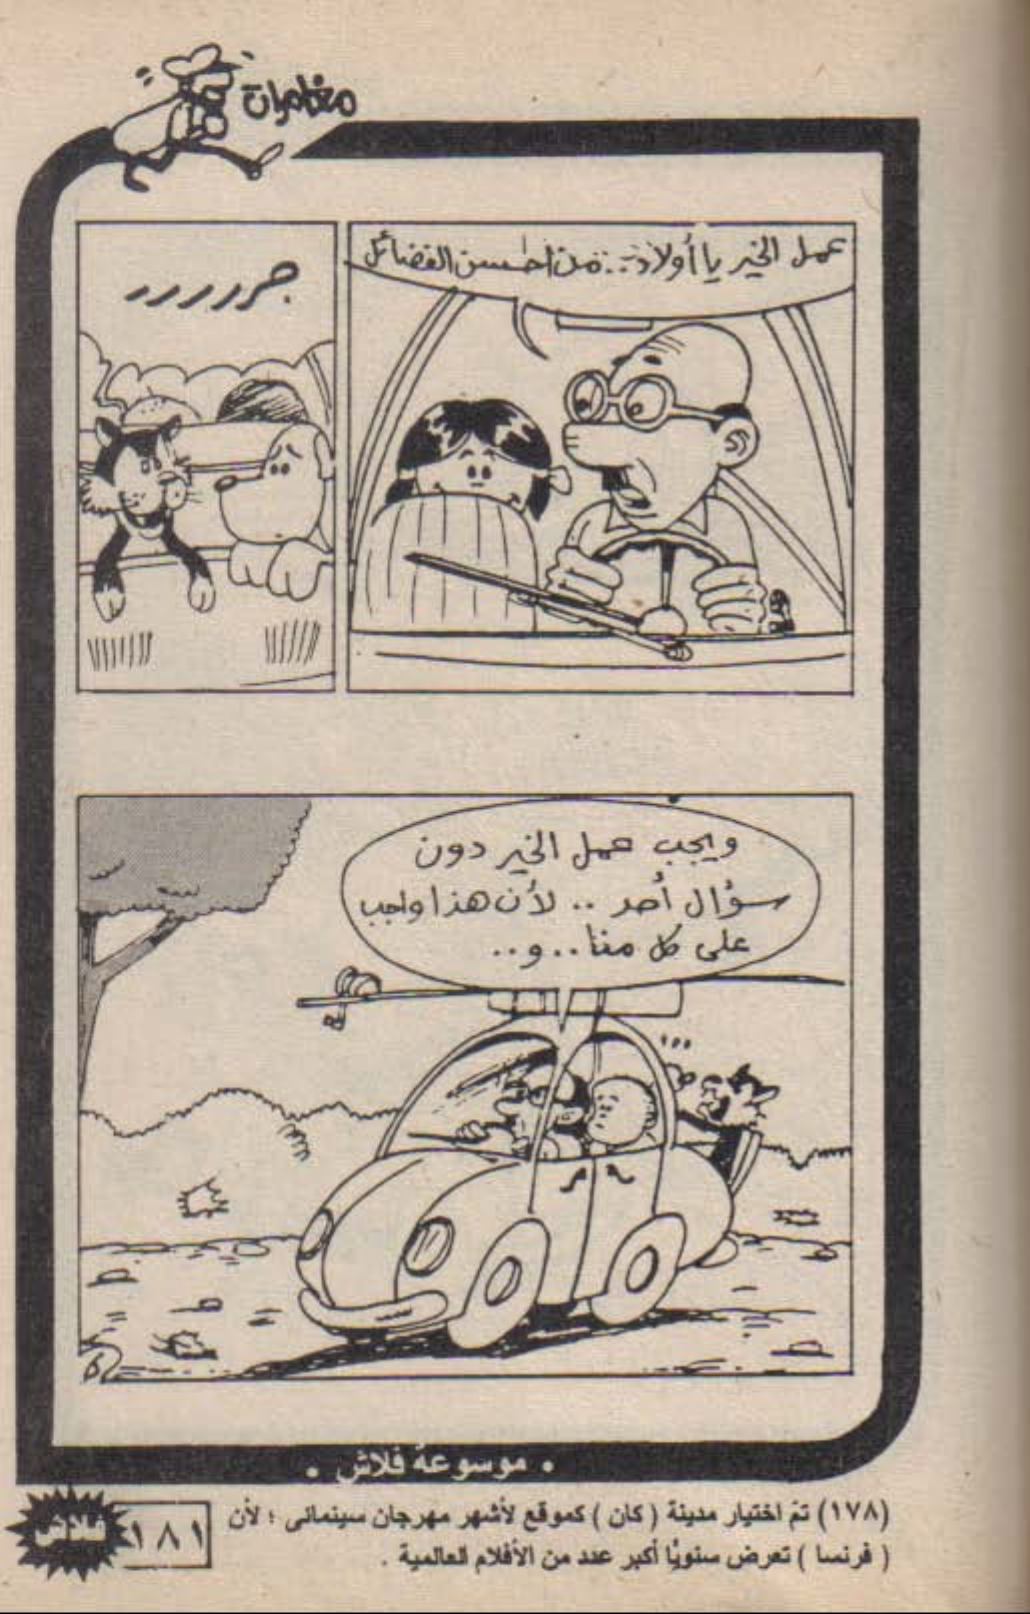 مغامرات
عمل الخير يا أولاد.. من أحسن الفضائل
جررررر
ويجب عمل الخير دون
سؤال أحد .. لأن هذا واجب
على كل منا.. و..
• موسوعة فلاش •
(١٧٨) تمّ اختيار مدينة ( كان ) كموقع لأشهر مهرجان سينمائى ؛ لأن
( فرنسا ) تعرض سنويًا أكبر عدد من الأفلام العالمية .
١٨١
فلاش